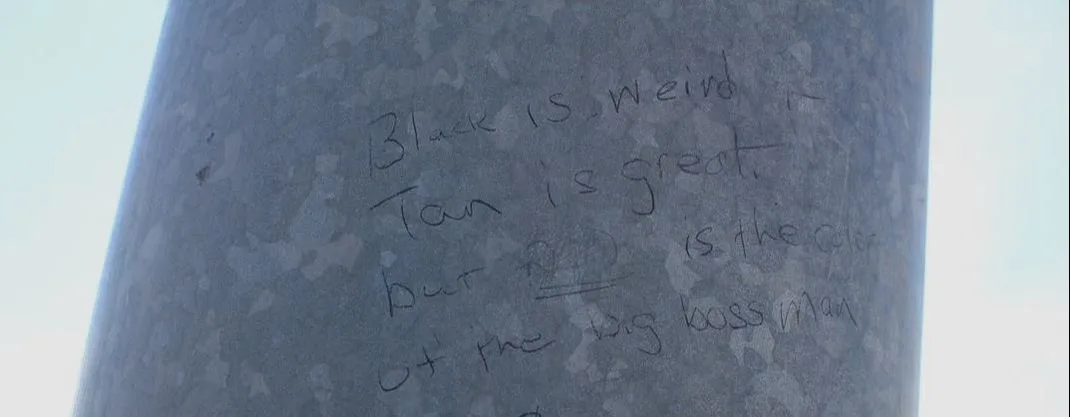 Black is weird
Tan is great.
but RED is the color
of the big boss man